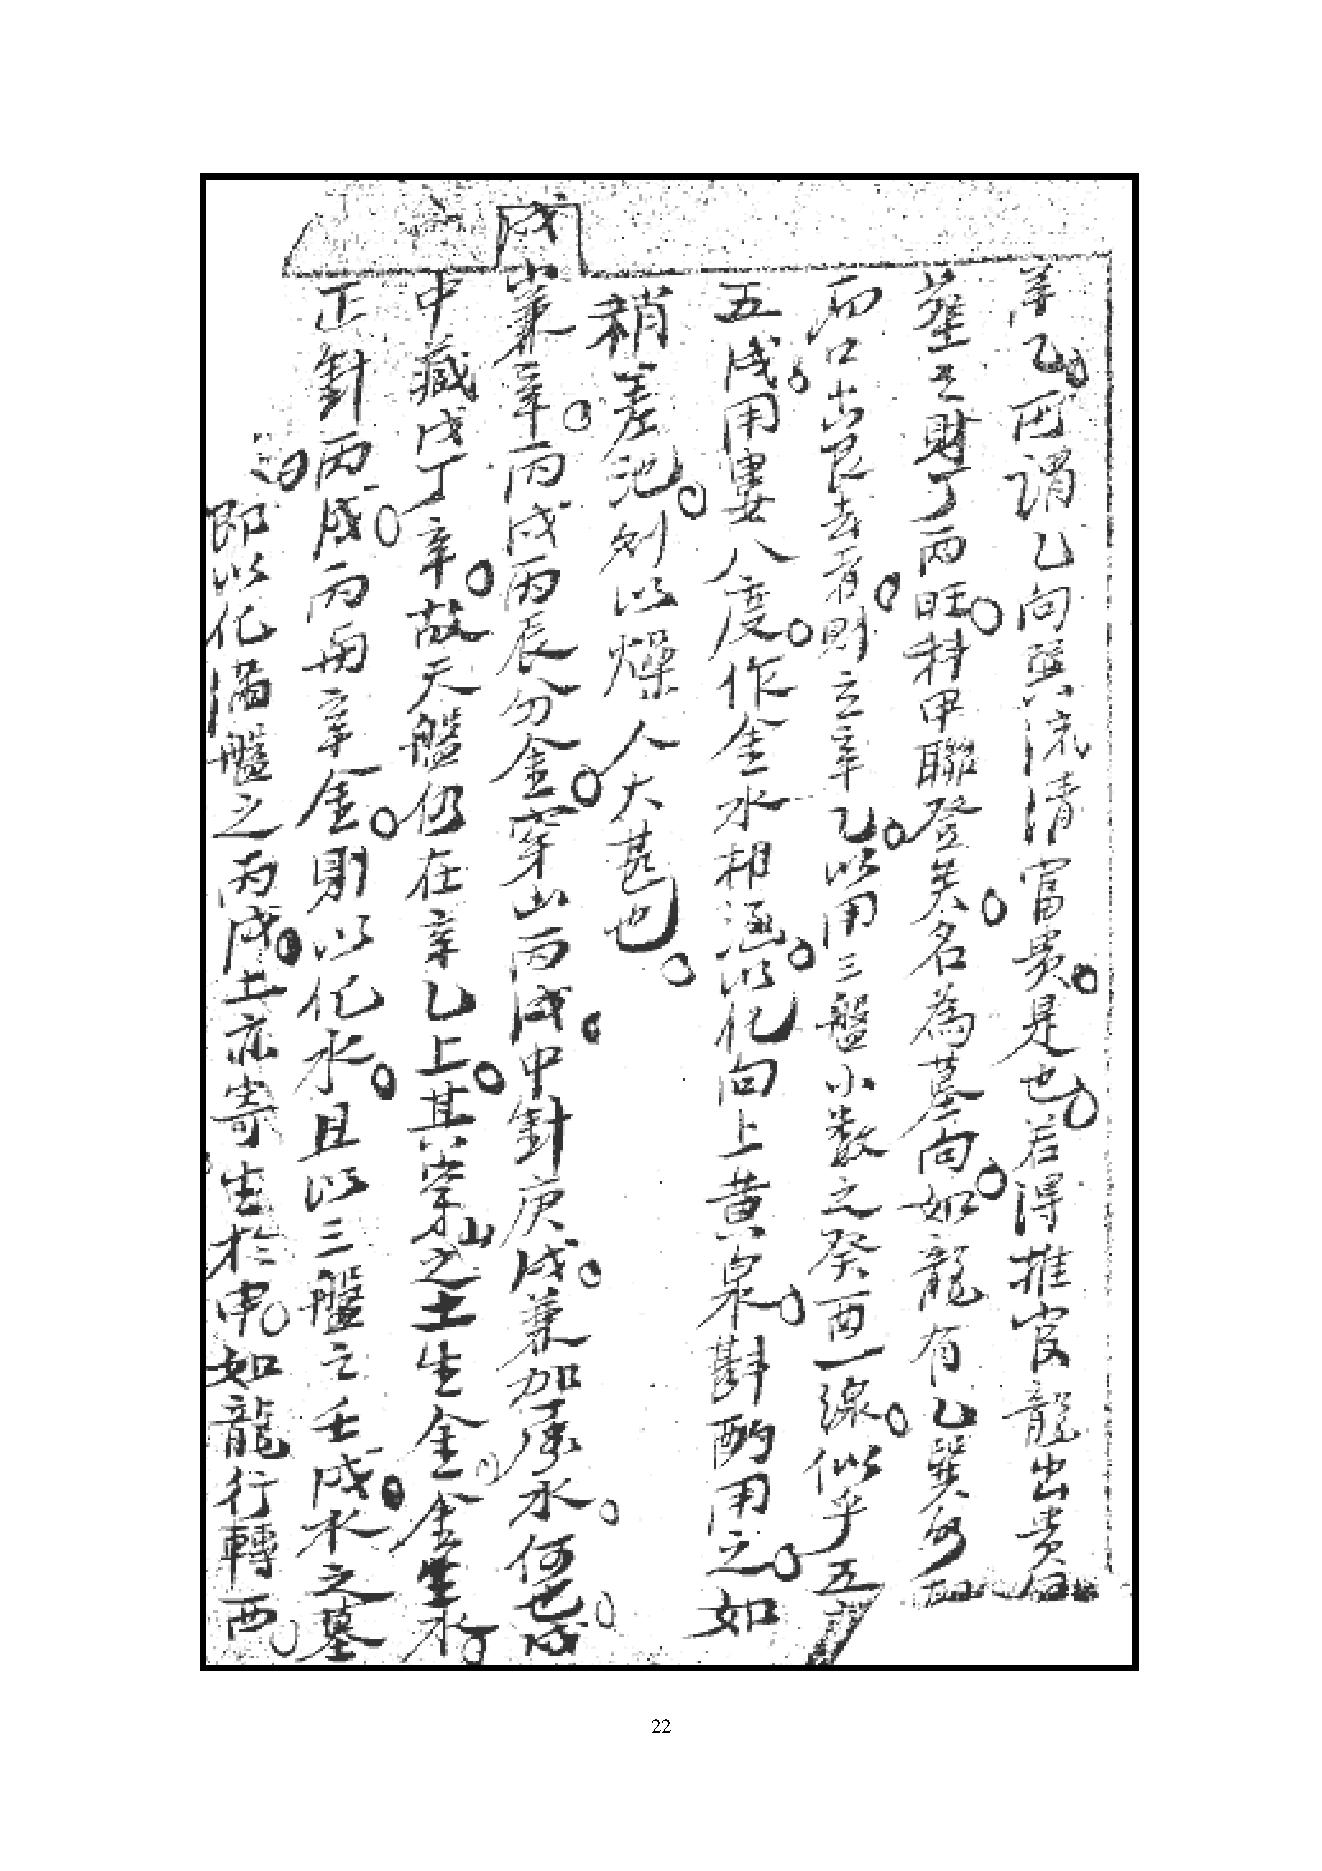 羊乙所謂乙向巽流清富貴是也若得推官龍出貴
葬立財丁两旺科甲聯登矣名為墓向如龍有乙巽
而口出艮去者則立辛乙以用三盤小数之癸酉一線似乎五
五戌用婁八度作金水相涵以化向上黄泉斟酌用之如
稍差池列以燥人大甚也
戌山兼辛丙戌丙辰分金穿山丙戌中針庚戌兼加承水何也戌
中藏戊丁辛故天盤仍在辛乙上其穿山之土生金金生水
正針丙戌而用辛金則以化水且以三盤之壬戌水之墓
即以化滿盤之丙戌土亦寄生於申如龍行轉西
22